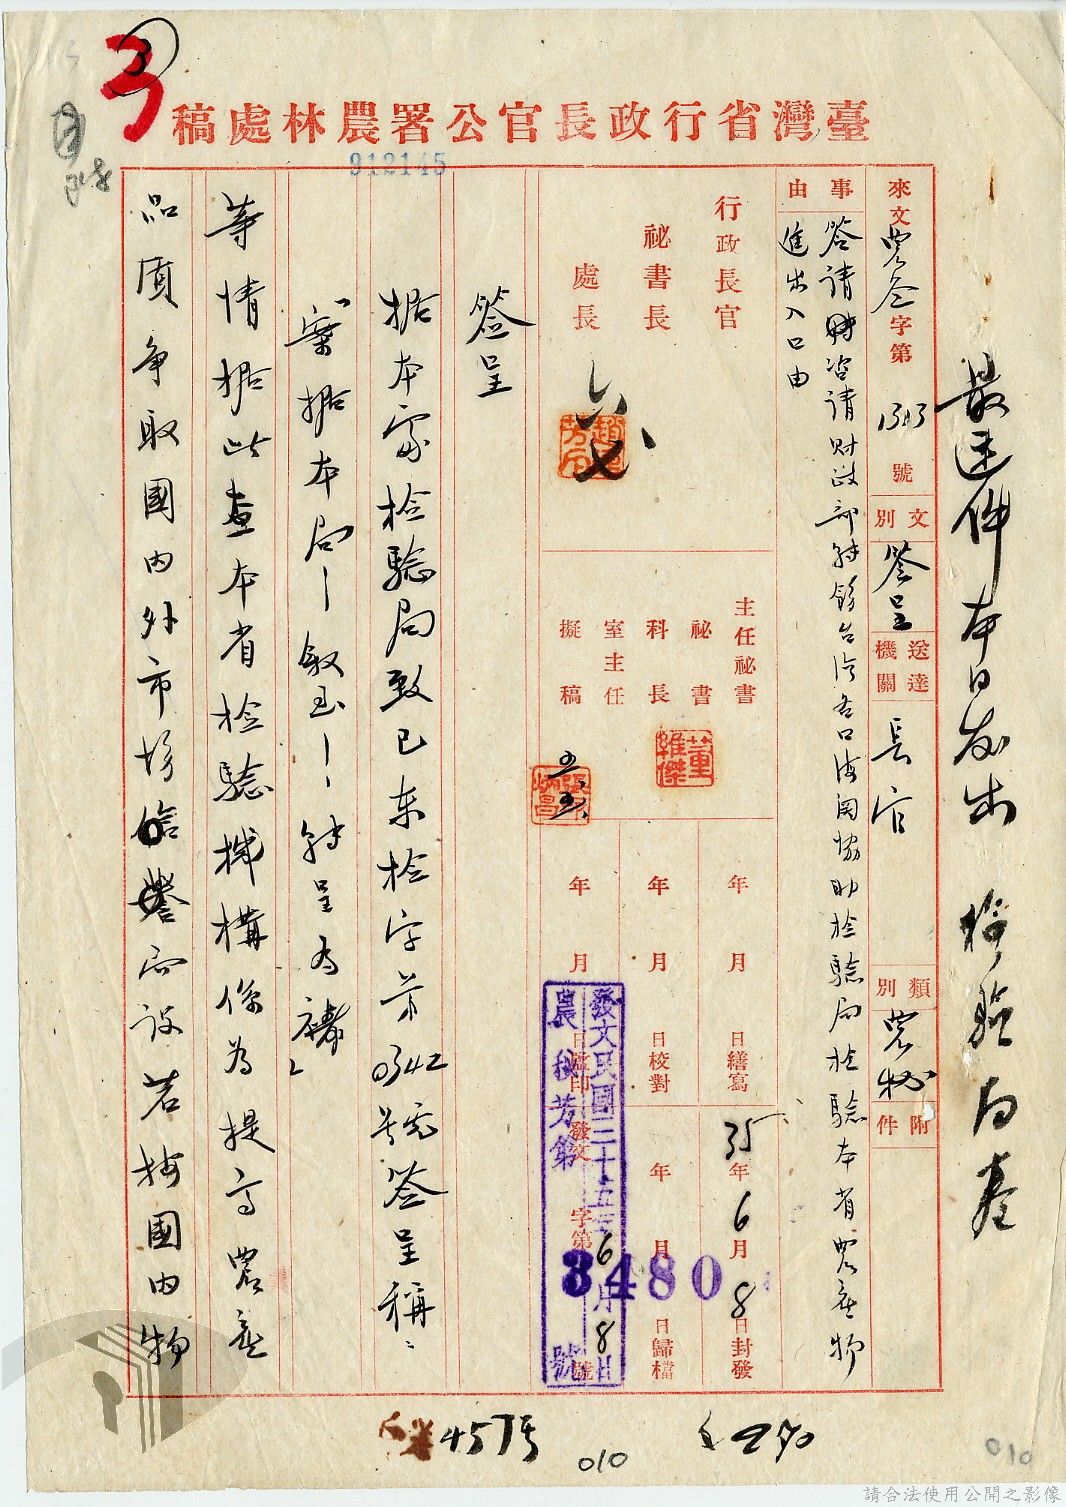 臺灣省行政長官公署農林處稿
912145
最速件本日發出
來文農簽字第1313號
文別 簽呈
送達機關 長官
類別 農秘
附件
事由
簽請咨請財政部轉飭台灣各口海關協助檢驗局檢驗本省農產物
進出入口由
行政長官
祕書長
處長
主任祕書
祕書
科長
室主任
擬稿
董維傑
年月日繕寫
年月日校對
年月日蓋印
35年6月8日封發
年月日歸檔
發文 字第 號
發文民國三十五年6月8日
農秘芳第 號
3480
簽呈
據本處檢驗局致巳東檢字第0342號簽呈稱：
「案據本局—敘至—轉呈為禱」
等情據此查本省檢驗機構係為提高農產
品質爭取國內外市場信譽而設若按國內物
4575
010
010
請合法使用公開之影像